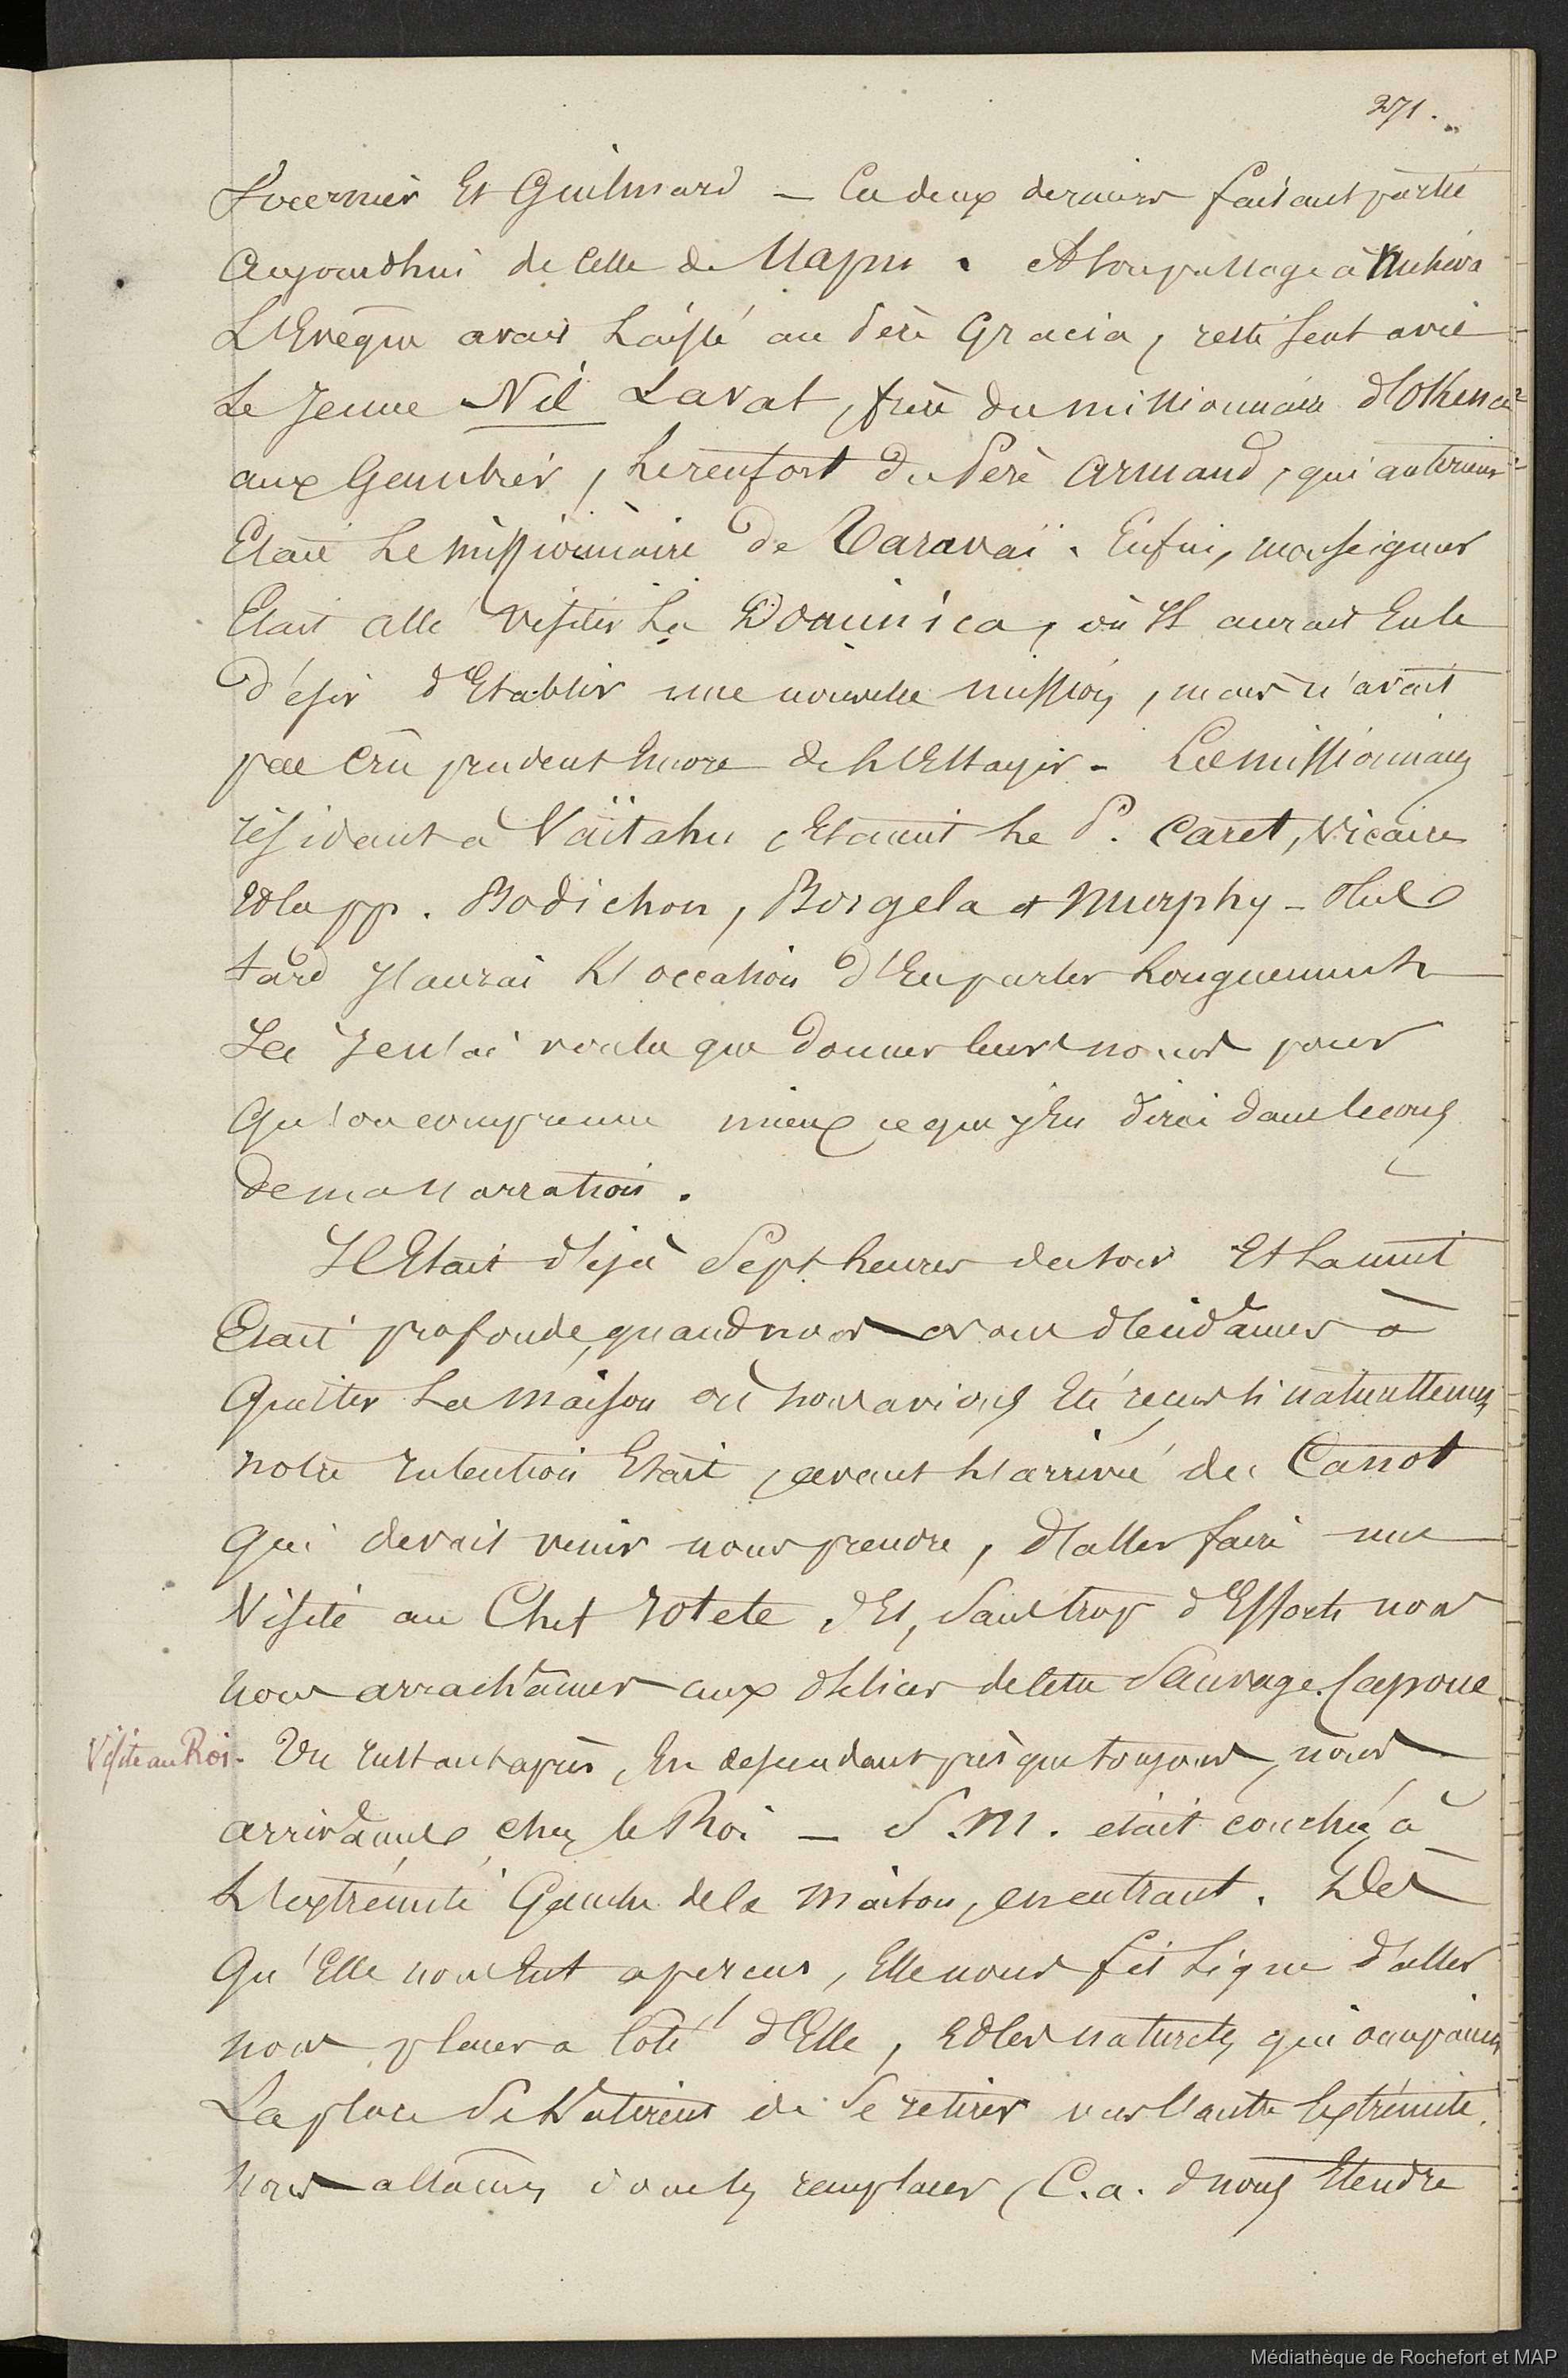 271.
Fournier Et Guilmard – Ces deux derniers faisant partie
Aujourdhui de Celle de Mapu. A son passage à Nuhiva
L'Evêque avait Laissé au Père Gracia, resté seul avec
Le Jeune Nil Lavat, frère du missionnaire d'Okena
aux Gambier, Le renfort du Père Armand, qui anterieur^t
Etait Le missionnaire de Taravaï. Enfin, monseigneur
Etait allé visiter La Dominica, où Il aurait Eu le
désir d'Etablir une nouvelle mission, mais n'avait
pas Crû prudent Encore de L'Essayer – Les missionnaires
résidant à Vaïtahu, Etaient Le P. Caret, Vicaire
Et les pp. Bodichon, Borgela et Murphy – Plus
tard J'aurai L'occasion d'En parler Longuement
Ici Je n'ai voulu que donner leurs noms pour
Qu'on comprenne mieux ce que j'En dirai dans le cours
de ma narration.
Il Etait déjà Sept heures du soir Et La nuit
Etait profonde, quand nous nous décidâmes à
Quitter La maison où nous avions Eté reçus si naturellement
notre Intention Etait, avant L'arrivée du Canot
Qui devait venir nous prendre, d'aller faire une
Visite au Chef Iotete, Et, Sans trop d'Efforts nous
nous arrachâmes aux délices de Cette Sauvage Capoue.
Visite au Roi. Un Instant après, En descendant presque toujours, nous
arrivâmes chez le Roi – S. M. était couchée, à
L'extrémité Gauche de la maison, en entrant. Dès
Qu'Elle nous Eut aperçus, Elle nous fit Signe d'aller
nous placer a Côté d'Elle, Et les naturels, qui occupaient
La place Se hâtèrent de Se retirer vers L'autre Extrémité.
nous allâmes donc les remplacer, C.a. d nous Etendre
Médiathèque de Rochefort et MAP